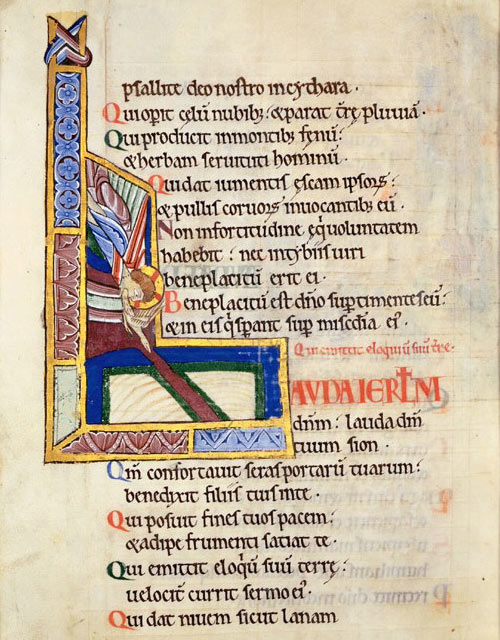 psallite deo nostro in cythara .
Qui opit celū nubibꝫ : & parat t̄re pluviā .
Qui producit inmontibꝫ fenū :
& herbam seruituti hominū .
Qui dat iumentis escam ipsoꝝ :
& pullis coruoꝝ inuocantibꝫ eū .
Non infortitudine eq̇uoluntatem
habebit : nec intybiis uiri
beneplacitū erit ei .
Beneplacitū est dn̄o sup timentes eū :
& in eis q̇ sperant sup miscdia ei᾽ .
Qui emittit eloquiū suū t̄re .
LAUDA IERLM
dnm : lauda dm̄
tuum sion .
Qm̄ confortauit seras portarū tuarum :
benedixit filiis tuis inte .
Qui posuit fines tuos pacem :
& adipe frumenti satiat te .
Qui emittit eloqū suū terrę :
velocit̄ currit sermo ei᾽ .
Qui dat niuem sicut lanam